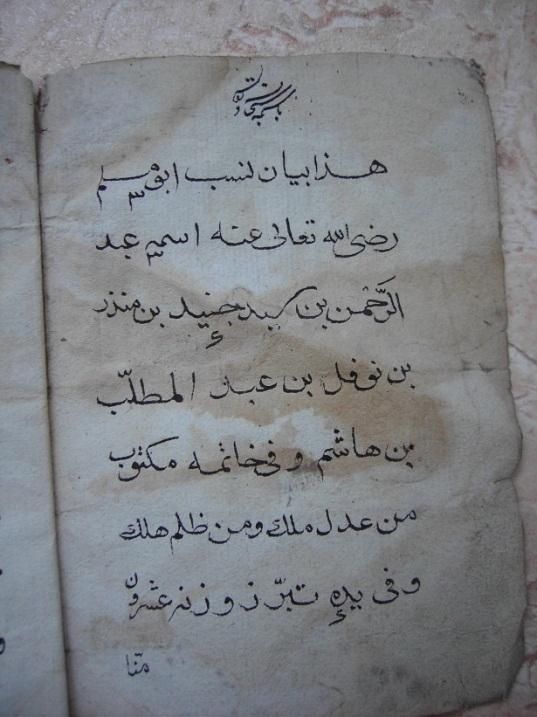 هذا بيان نسب ابو مسلم
رضى الله تعالى عنه اسمه عبد
الرَّحْمن بن سيد جنيد بن منذر
بن نوفل بن عبد المطلّب
بن هاشم و فى خاتمه مكتوب
من عدل ملك ومن ظلم هلك
و فى يده تبرّز و زنه عشرون
منّا